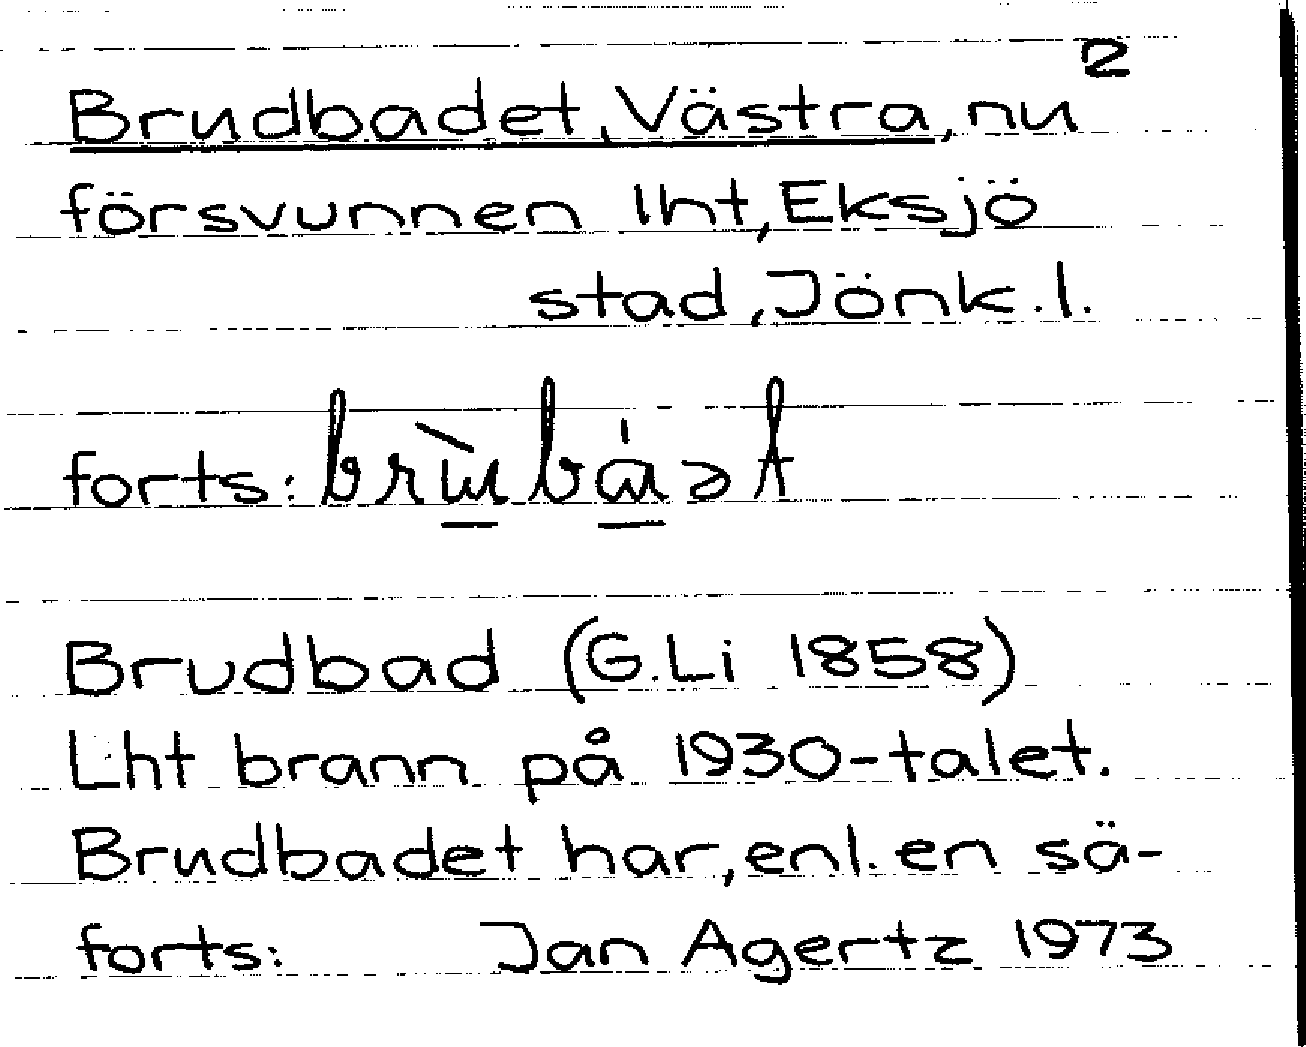 2
Brudbadet, Västra, nu
försvunnen lht, Eksjö
stad, Jönk. l.
forts:
Brudbad (G.Li 1858)
Lht brann på 1930-talet.
Brudbadet har, enl. en sä-
forts: Jan Agertz 1973